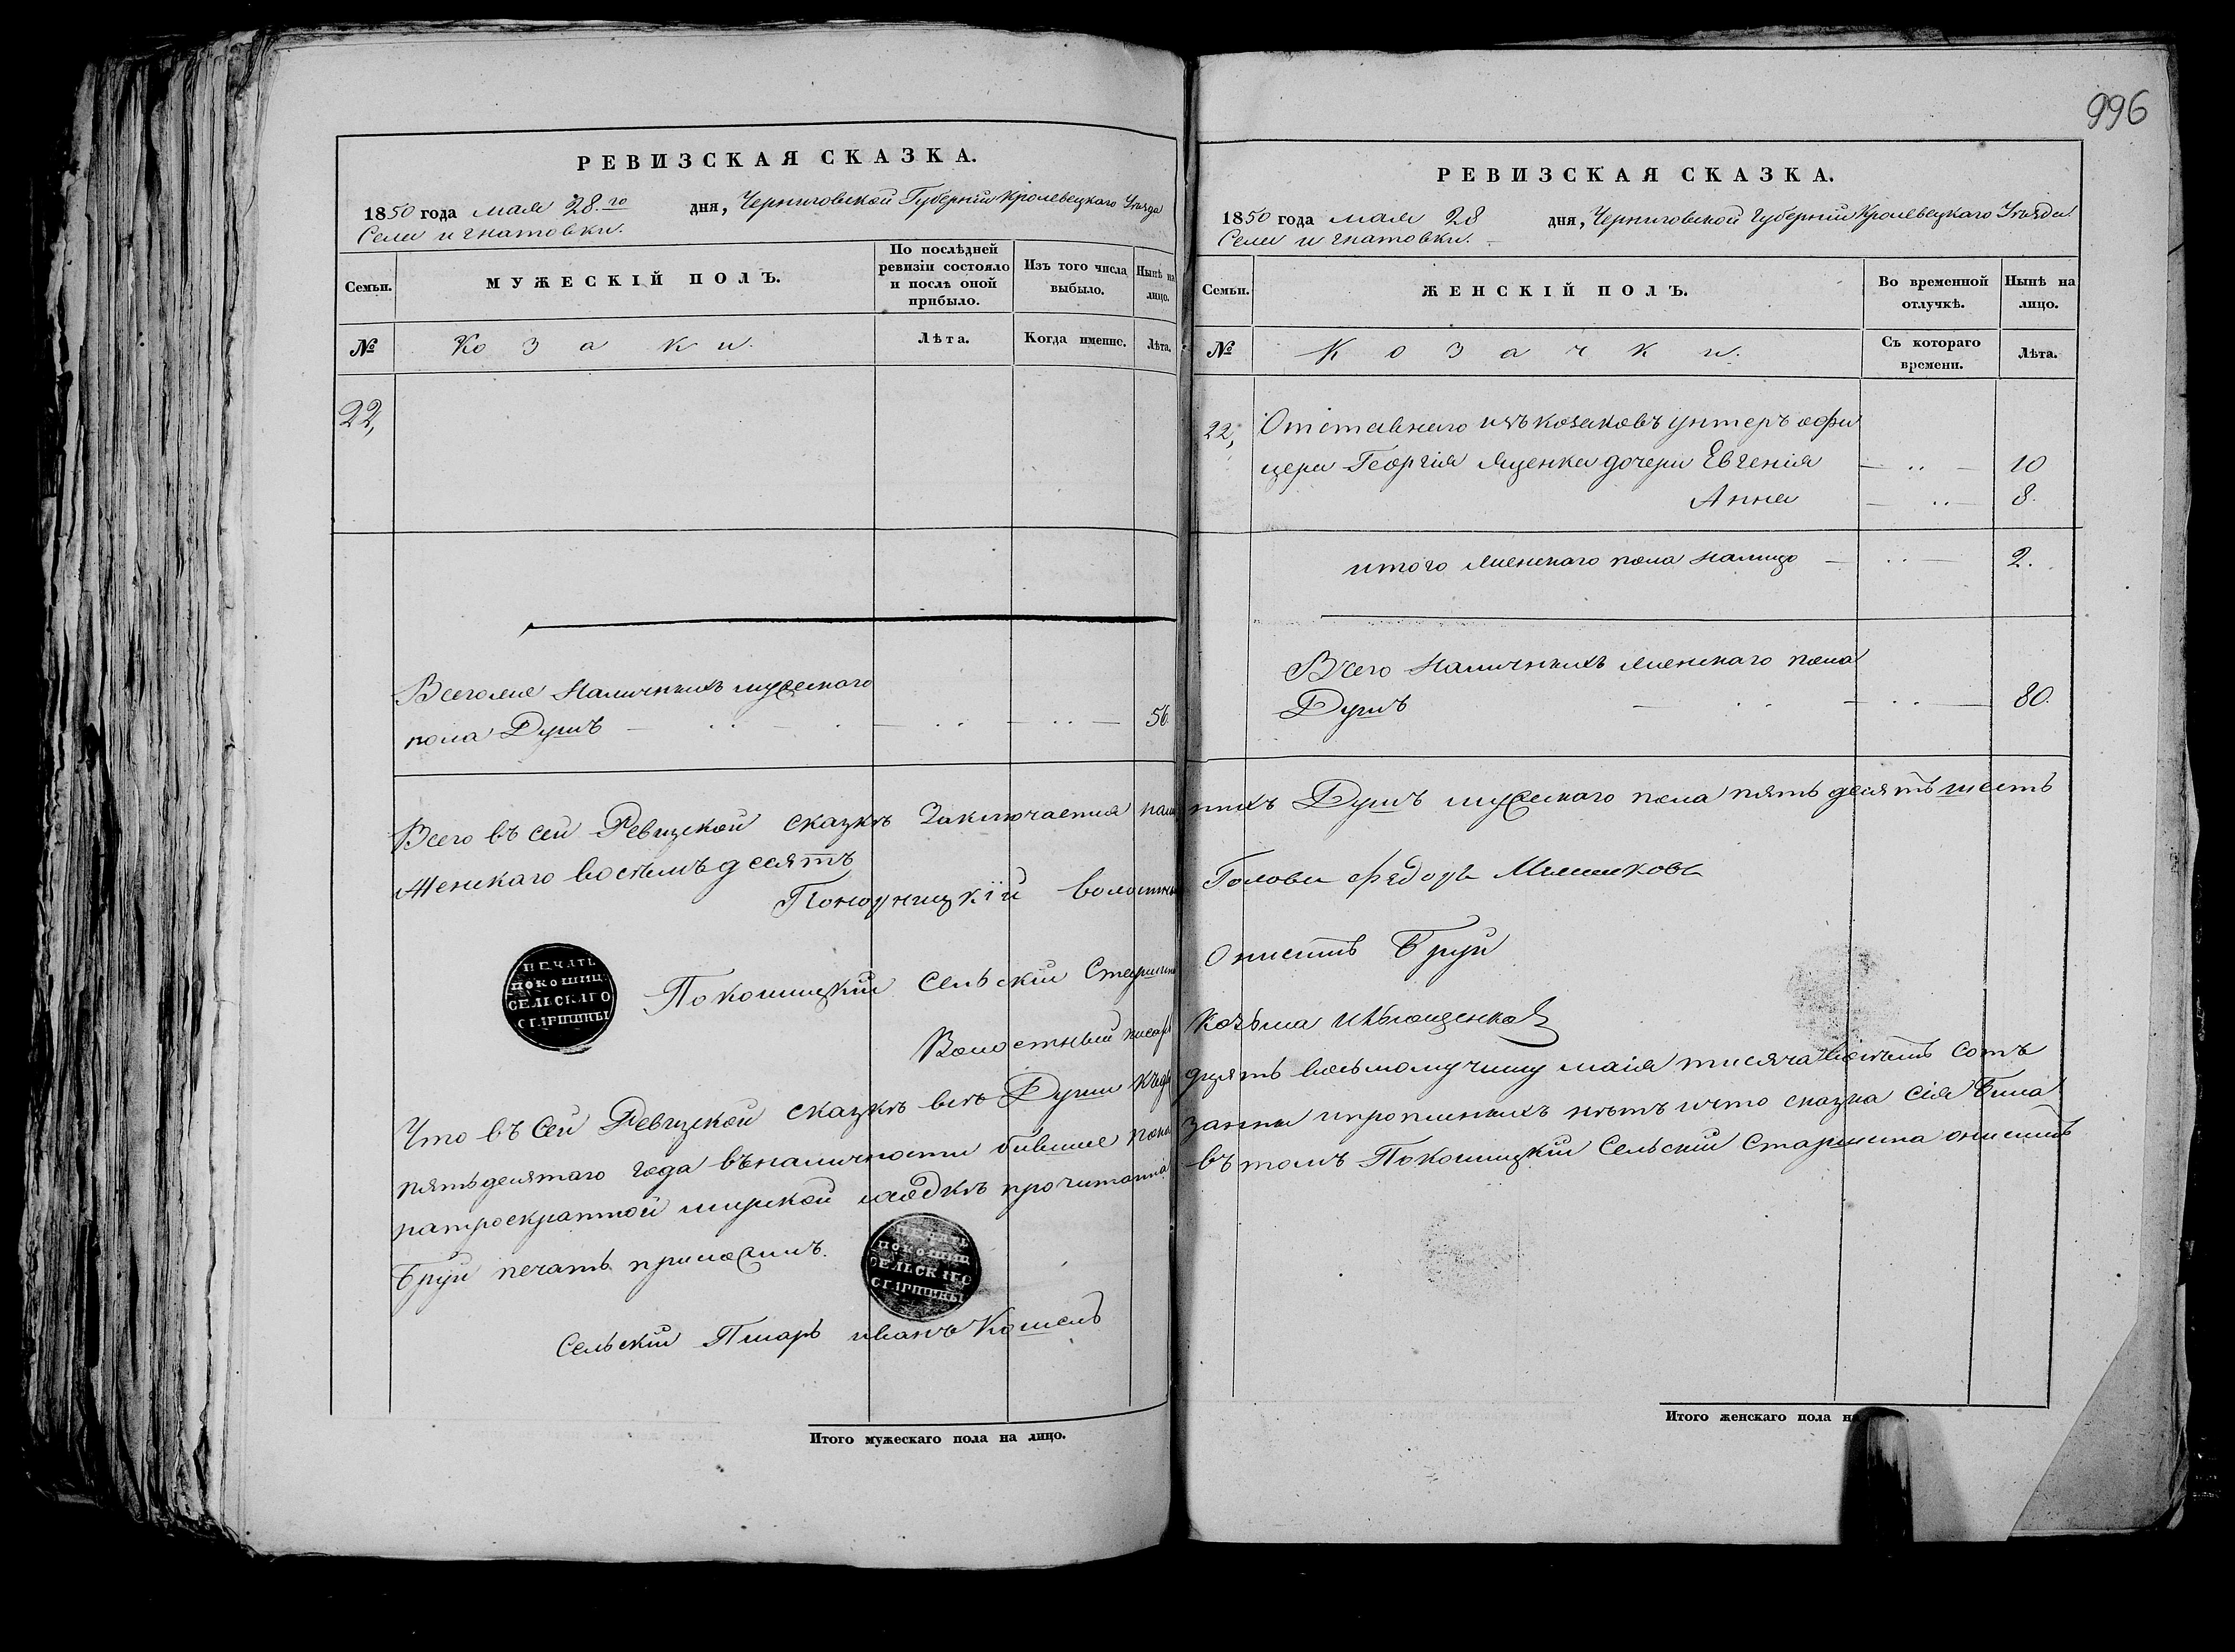 996
РЕВИЗСКАЯ СКАЗКА.
1850 года мая 28.го дня, Черниговской Губерніи Кролевецкаго Уѣзда
Села игнатовки.
Семьи.
МУЖЕСКІЙ ПОЛЪ.
По послѣдней ревизіи состояло и послѣ оной прибыло.
Изъ того числа выбыло.
Нынѣ на лицо.
№
Козаки.
Лѣта.
Когда именно.
Лѣта.
22,
Всегоже Наличныхъ мужескаго
пола Душъ 56.
РЕВИЗСКАЯ СКАЗКА.
1850 года мая 28 дня, Черниговской Губерніи Кролевецкаго Уѣзда.
Села игнатовки.
Семьи.
ЖЕНСКІЙ ПОЛЪ.
Во временной отлучкѣ.
Нынѣ на лицо.
№
Козачки.
Съ котораго времени.
Лѣта.
22, Отставнаго изъ козаковъ унтеръ офи
цера Георгія Яценка дочери Евгенія 10
Анна 8.
итого женскаго пола налицо 2.
Всего Наличныхъ женскаго пола
Душъ 80.
Всего въ сей Ревизской сказкѣ Заключается нали ныхъ Душъ мужескаго пола пять десять шесть
Женскаго восемъ десятъ
Волостный Голова Федоръ
ПЕЧАТЬ
ПОКОШИЦ
СЕЛЬСКАГО
СТАРШИНЫ
Покошицкій Сельскій Старшина Онисимъ Бруй
Волостный писарь Козьма
Что въ Сей Ревизской сказкѣ всѣ Души къ дцять восьмому числу маія тисяча восемъ сотъ
пятьдесятаго года въналичности бившіе пока занны ипрописныхъ нѣтъ ичто сказка сія Била
натроекратной мирской сходкѣ прочитанна въ томъ Покошицкій Сельскій Старшина онисимъ
Бруй печать приложилъ.
ПЕЧАТЬ
ПОКОШИЦ
СЕЛЬСКАГО
СТАРШИНЫ
Сельскій Писарь иванъ Кошель
Итого мужескаго пола на лицо.
Итого женскаго пола на